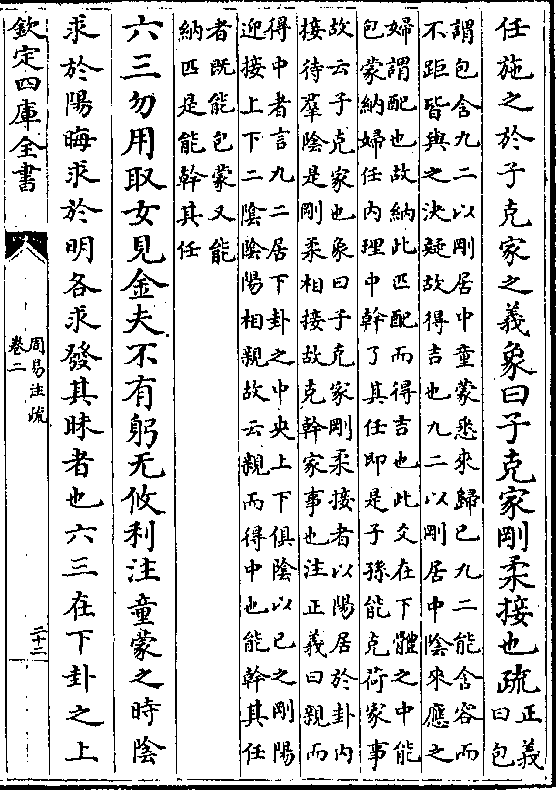 任施之於子克家之義象曰子克家剛柔接也疏正義
曰包
謂包含九二以剛居中童蒙悉來歸已九二能含容而
不距皆與之決疑故得吉也九二以剛居中陰來應之
婦謂配也故納此匹配而得吉也此爻在下體之中能
包蒙納婦任内理中幹了其任即是子孫能克荷家事
故云子克家也象曰子克家剛柔接者以陽居於卦内
接待羣陰是剛柔相接故克幹家事也注正義曰親而
得中者言九二居下卦之中央上下俱陰以已之剛陽
迎接上下二陰陰陽相親故云親而得中也能幹其任
者既能包蒙又能
納匹是能幹其任
六三勿用取女見金夫不有躬无攸利注童蒙之時陰
求於陽晦求於明各求發其昧者也六三在下卦之上
欽定四庫全書
周易注疏
卷二
二十二